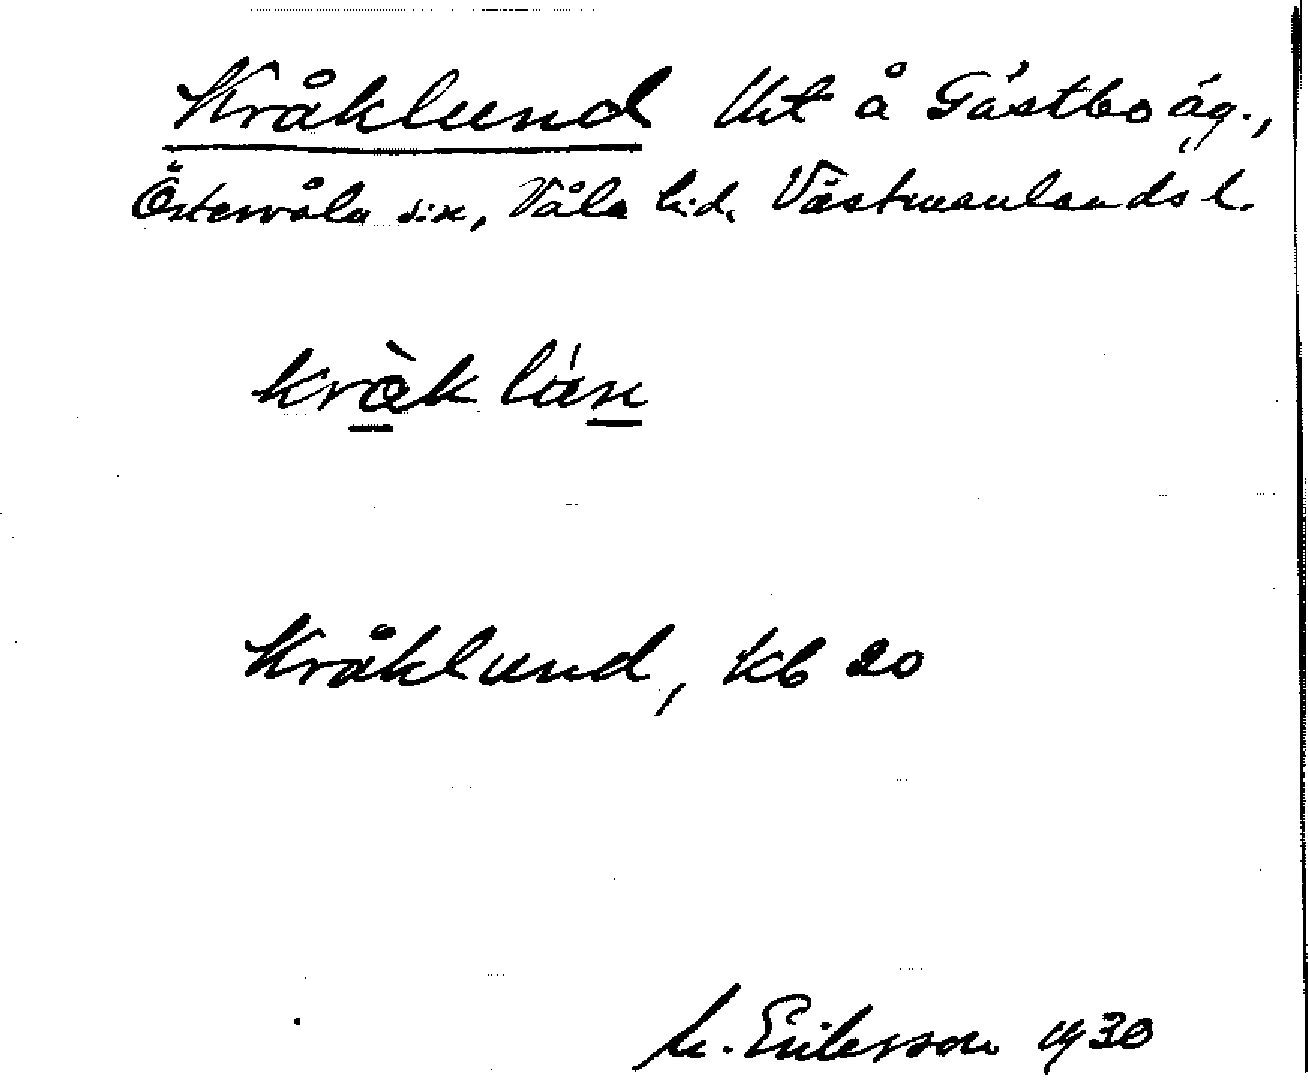 Kråklund Urt å Gästbo äg.,
Östervåla sn, Våla hd. Västmanlands l.
Kråklund, kb 20
M. Eriksson 1930